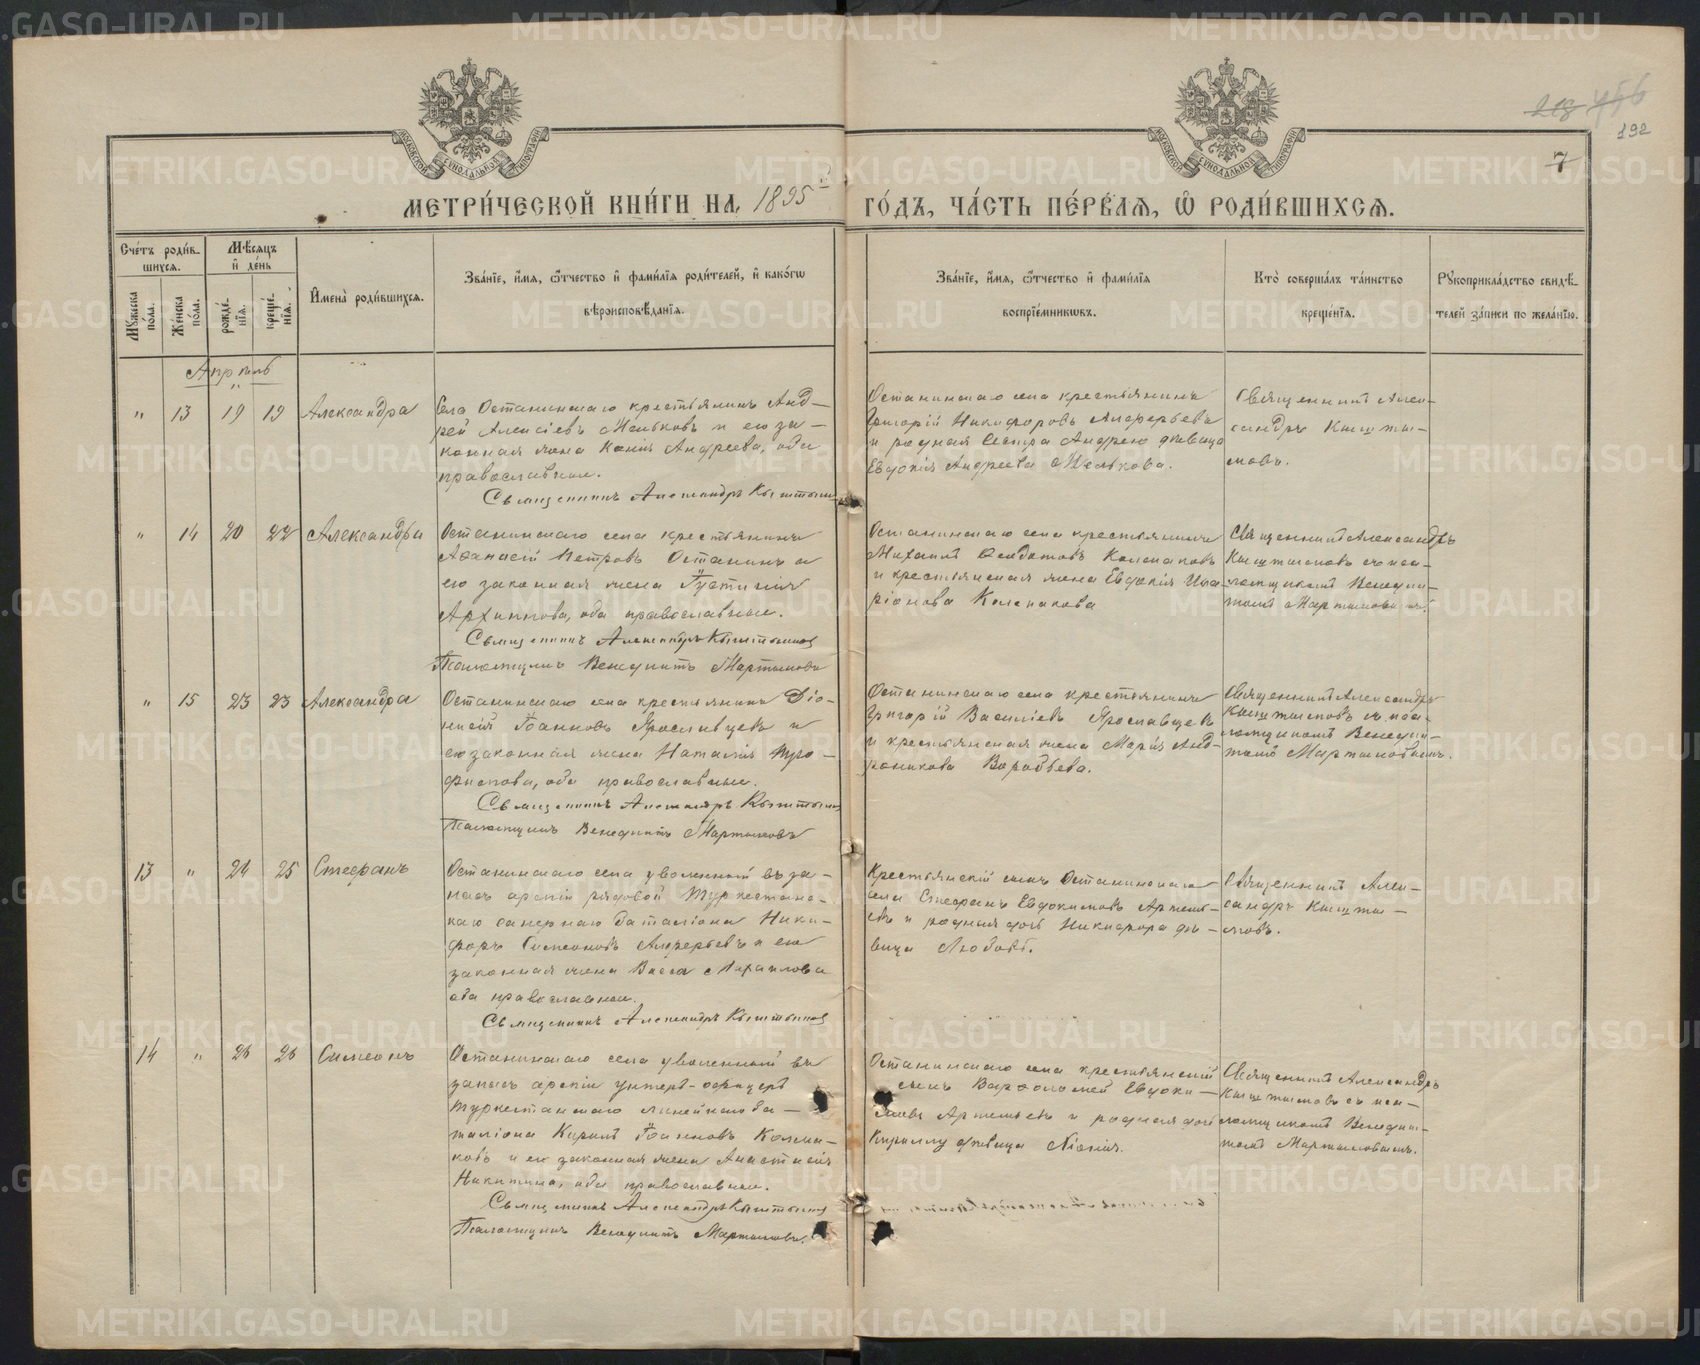 213 456
192
7
МОСКОВСКОЙ СѴНОДАЛЬНОЙ ТИПОГРАФІИ
МОСКОВСКОЙ СѴНОДАЛЬНОЙ ТИПОГРАФІИ
МЕТРИ́ЧЕСКОЙ КНИ́ГИ НА 1895 й ГО́ДЪ, ЧА́СТЬ ПЕ́РВАѦ, Ѡ РОДИ́ВШИХСѦ.
Сче́тъ роди́в-
шихсѧ.
Му́жеска по́ла.
Же́нска по́ла.
Мѣ́сѧцъ
и҆ де́нь
рожде́-
нїѧ.
креще́-
нїѧ.
И҆мена̀ роди́вшихсѧ.
Зва́нїе, и҆́мѧ, ѻ҆́тчество и҆ фами́лїѧ роди́телей, и҆ како́гѡ
вѣроисповѣ́данїѧ.
Зва́нїе, и҆́мѧ, ѻ҆́тчество и҆ фами́лїѧ
воспрїе́мникѡвъ.
Кто̀ соверша́лъ та́инство
креще́нїѧ.
Рꙋкоприкла́дство свидѣ́-
телей за́писи по жела́нїю.
Апрѣль
" 13 19 19 Александра
Села Останинскаго крестьянинъ Анд-
рей Алексіевъ Мельковъ и его за-
конная жена Ксенія Андреева, оба
православные.
Священникъ Александръ Кыштымовъ
Останинскаго села крестьянинъ
Григорій Никифоровъ Алферьевъ
и родная сестра Андрею дѣвица
Евдокія Андреева Мелькова.
Священникъ Алек-
сандръ Кышты-
мовъ.
" 14 20 22 Александра
Останинскаго села крестьянинъ
Аѳанасій Петровъ Останинъ и
его законная жена Іустинія
Архиппова, оба православные.
Священникъ Александръ Кыштымовъ
Псаломщикъ Венедиктъ Мартыновъ
Останинскаго села крестьянинъ
Михаилъ Колпаковъ
и крестьянская жена Евдокія Ила-
ріонова Колпакова
Священникъ Александръ
Кыштымовъ съ пса-
ломщикомъ Венедик-
томъ Мартыновымъ.
" 15 23 23 Александра
Останинскаго села крестьянинъ Діо-
нисій Іоанновъ Ярославцевъ и
его законная жена Наталія Тро-
фимова, оба православные.
Священникъ Александръ Кыштымовъ
Псаломщикъ Венедиктъ Мартыновъ
Останинскаго села крестьянинъ
Григорій Василіевъ Ярославцевъ
и крестьянская жена Марія Анд-
роникова Воробьева.
Священникъ Александръ
Кыштымовъ съ пса-
ломщикомъ Венедик-
томъ Мартыновымъ.
13 " 24 25 Стефанъ
Останинскаго села уволенный въ за-
пасъ арміи рядовой Туркестанс-
каго сапернаго баталіона Ники-
форъ Симеоновъ Алферьевъ и его
законная жена Васса Михаилова
оба православные.
Священникъ Александръ Кыштымовъ
Крестьянскій сынъ Останинскаго
села Стефанъ Евдокимовъ Артемь-
евъ и родная дочь Никифора дѣ-
вица Любовь.
Священникъ Алек-
сандръ Кышты-
мовъ.
14 " 26 26 Симеонъ
Останинскаго села уволенный въ
запасъ арміи унтеръ-офицеръ
Туркестанскаго линейнаго ба-
таліона Кирилъ Іоанновъ Колма-
ковъ и его законная жена Анастасія
Никитина, оба православные.
Священникъ Александръ Кыштымовъ
Псаломщикъ Венедиктъ Мартыновъ.
Останинскаго села крестьянскій
сынъ Варѳоломей Евдоки-
мовъ Артемьевъ и родная дочь
Кириллу дѣвица Ксенія.
Священникъ Александръ
Кыштымовъ съ пса-
ломщикомъ Венедик-
томъ Мартыновымъ.
METRIKI.GASO-URAL.RU